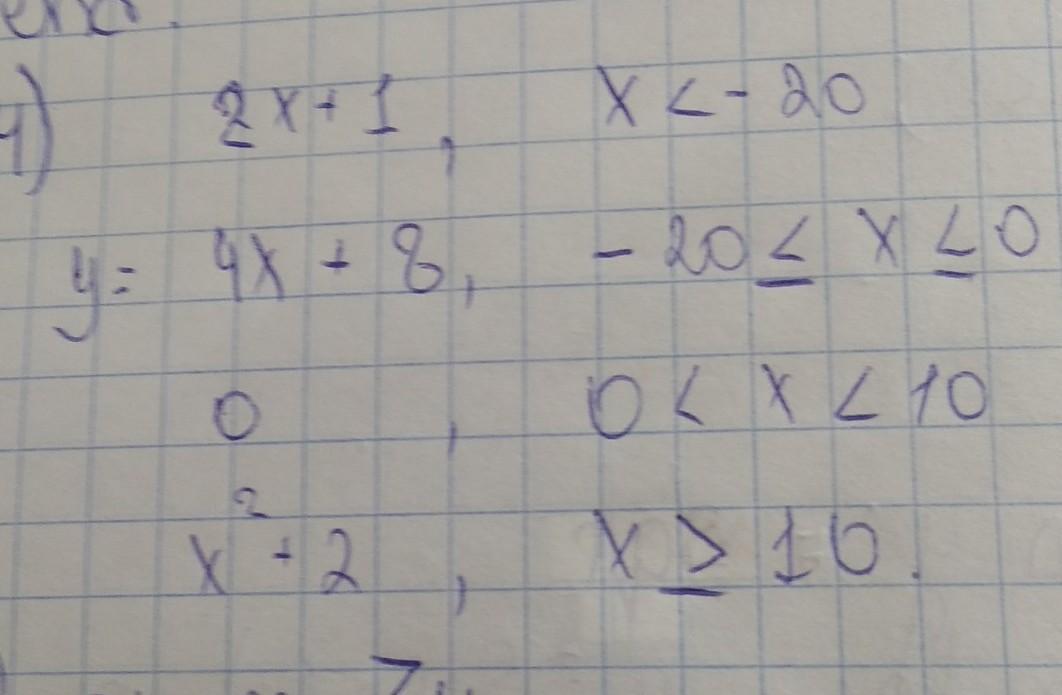 4) 2x + 1, x < - 20
y = 4x + 8, - 20 ≤ x ≤ 0
0 , 0 < x < 10
x² + 2 , x ≥ 10.